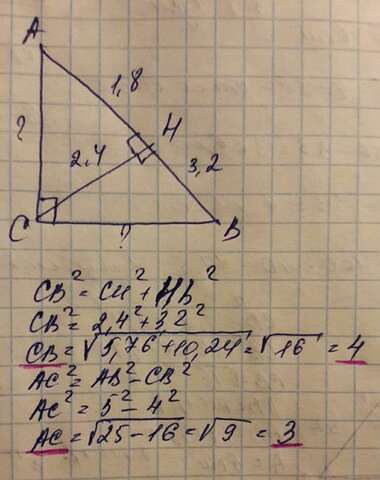 A
1,8
?
H
2,4
3,2
C
?
B
CB² = CH² + HB²
CB² = 2,4² + 3,2²
CB = √5,76 + 10,24 = √16 = 4
AC² = AB² - CB²
AC² = 5² - 4²
AC = √25 - 16 = √9 = 3